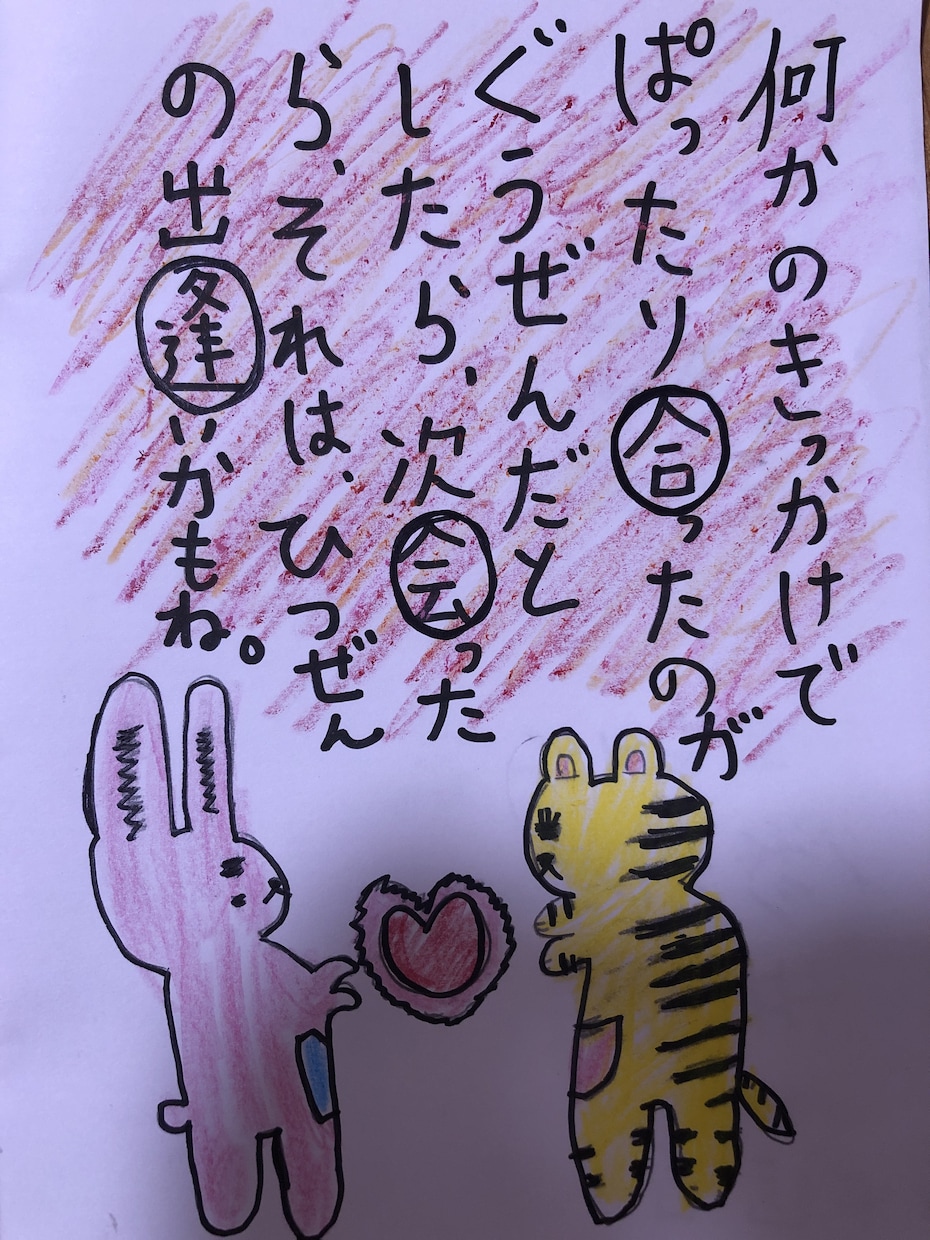 何かのきっかけで
ぱったり合ったのが
ぐうぜんだと
したら、次会った
ら、それは、ひつぜん
の出逢いかもね。